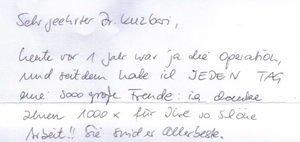 Sehr geehrter Dr. Kuzbari,
heute vor 1 Jahr war ja die Operation,
und seitdem habe ich JEDEN TAG
eine sooo große Freude: ich danke
Ihnen 1000 x für Ihre so schöne
Arbeit!! Sie sind der Allerbeste.